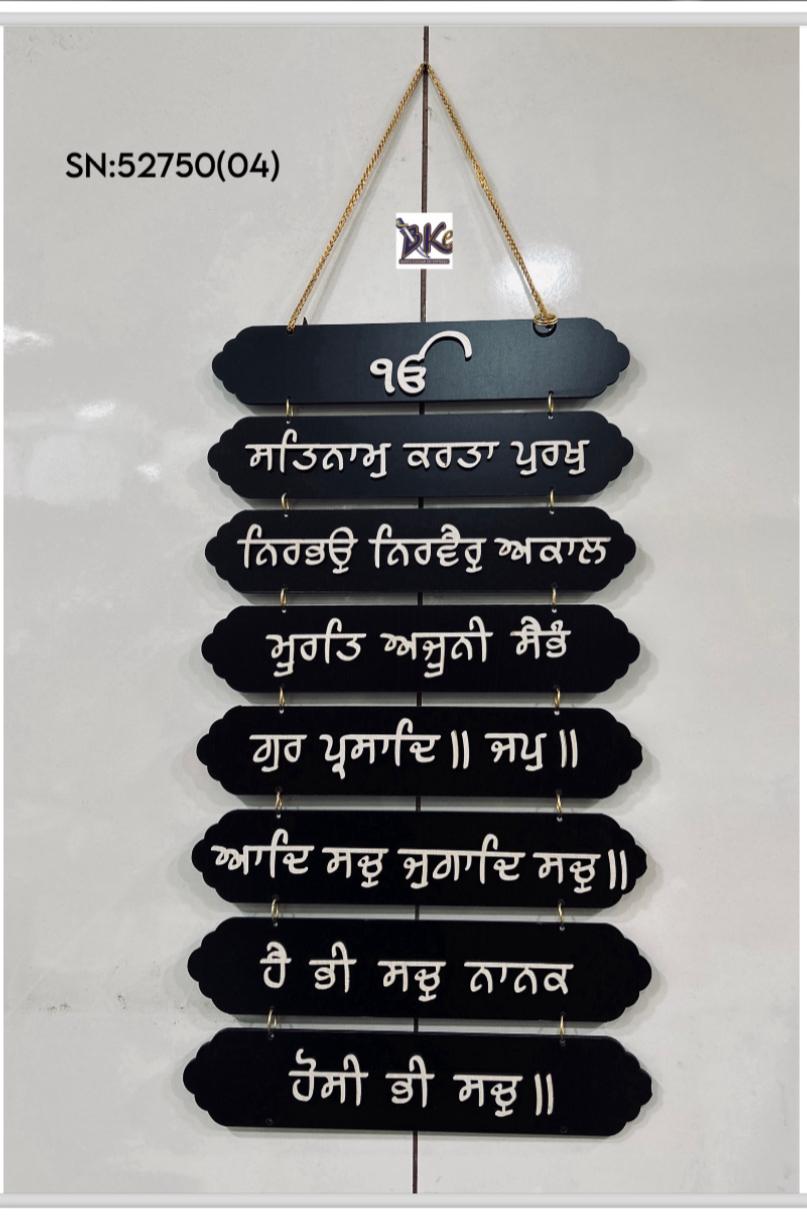 SN:52750(04)
BKe
ੴ
ਸਤਿਨਾਮੁ ਕਰਤਾ ਪੁਰਖੁ
ਨਿਰਭਉ ਨਿਰਵੈਰੁ ਅਕਾਲ
ਮੂਰਤਿ ਅਜੂਨੀ ਸੈਭੰ
ਗੁਰ ਪ੍ਰਸਾਦਿ॥ ਜਪੁ॥
ਆਦਿ ਸਚੁ ਜੁਗਾਦਿ ਸਚੁ॥
ਹੈ ਭੀ ਸਚੁ ਨਾਨਕ
ਹੋਸੀ ਭੀ ਸਚੁ॥